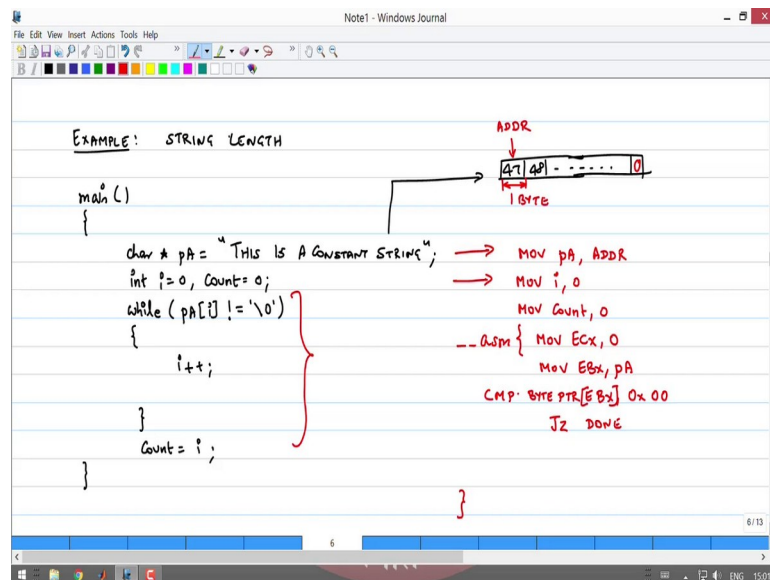 Note1 - Windows Journal
File Edit View Insert Actions Tools Help
B I
EXAMPLE: STRING LENGTH
ADDR
47 48 - - . . . . . 0
1 BYTE
main()
{
char * pA = "THIS IS A CONSTANT STRING"; → MOV pA, ADDR
int i=0, Count=0; → MOV i, 0
while (pA[i] != '\0') MOV Count, 0
{ __asm { MOV ECx, 0
i++; MOV EBx, pA
CMP. BYTE PTR[EBx] 0x00
} JZ DONE
Count = i;
}
}
6/13
6
ENG 15:01